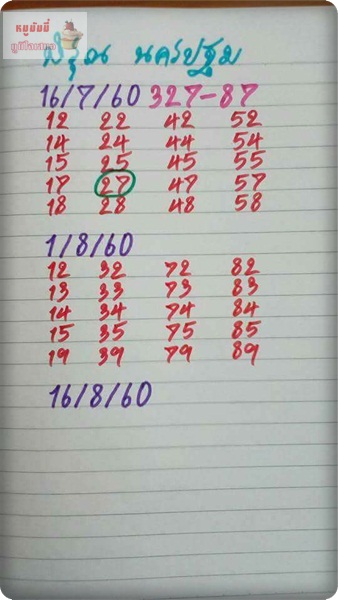 หมูมัมมี่
นครปฐม
16/7/60 327-87
12 22 42 52
14 24 44 54
15 25 45 55
17 27 47 57
18 28 48 58
1/8/60
12 32 72 82
13 33 73 83
14 34 74 84
15 35 75 85
19 39 79 89
16/8/60